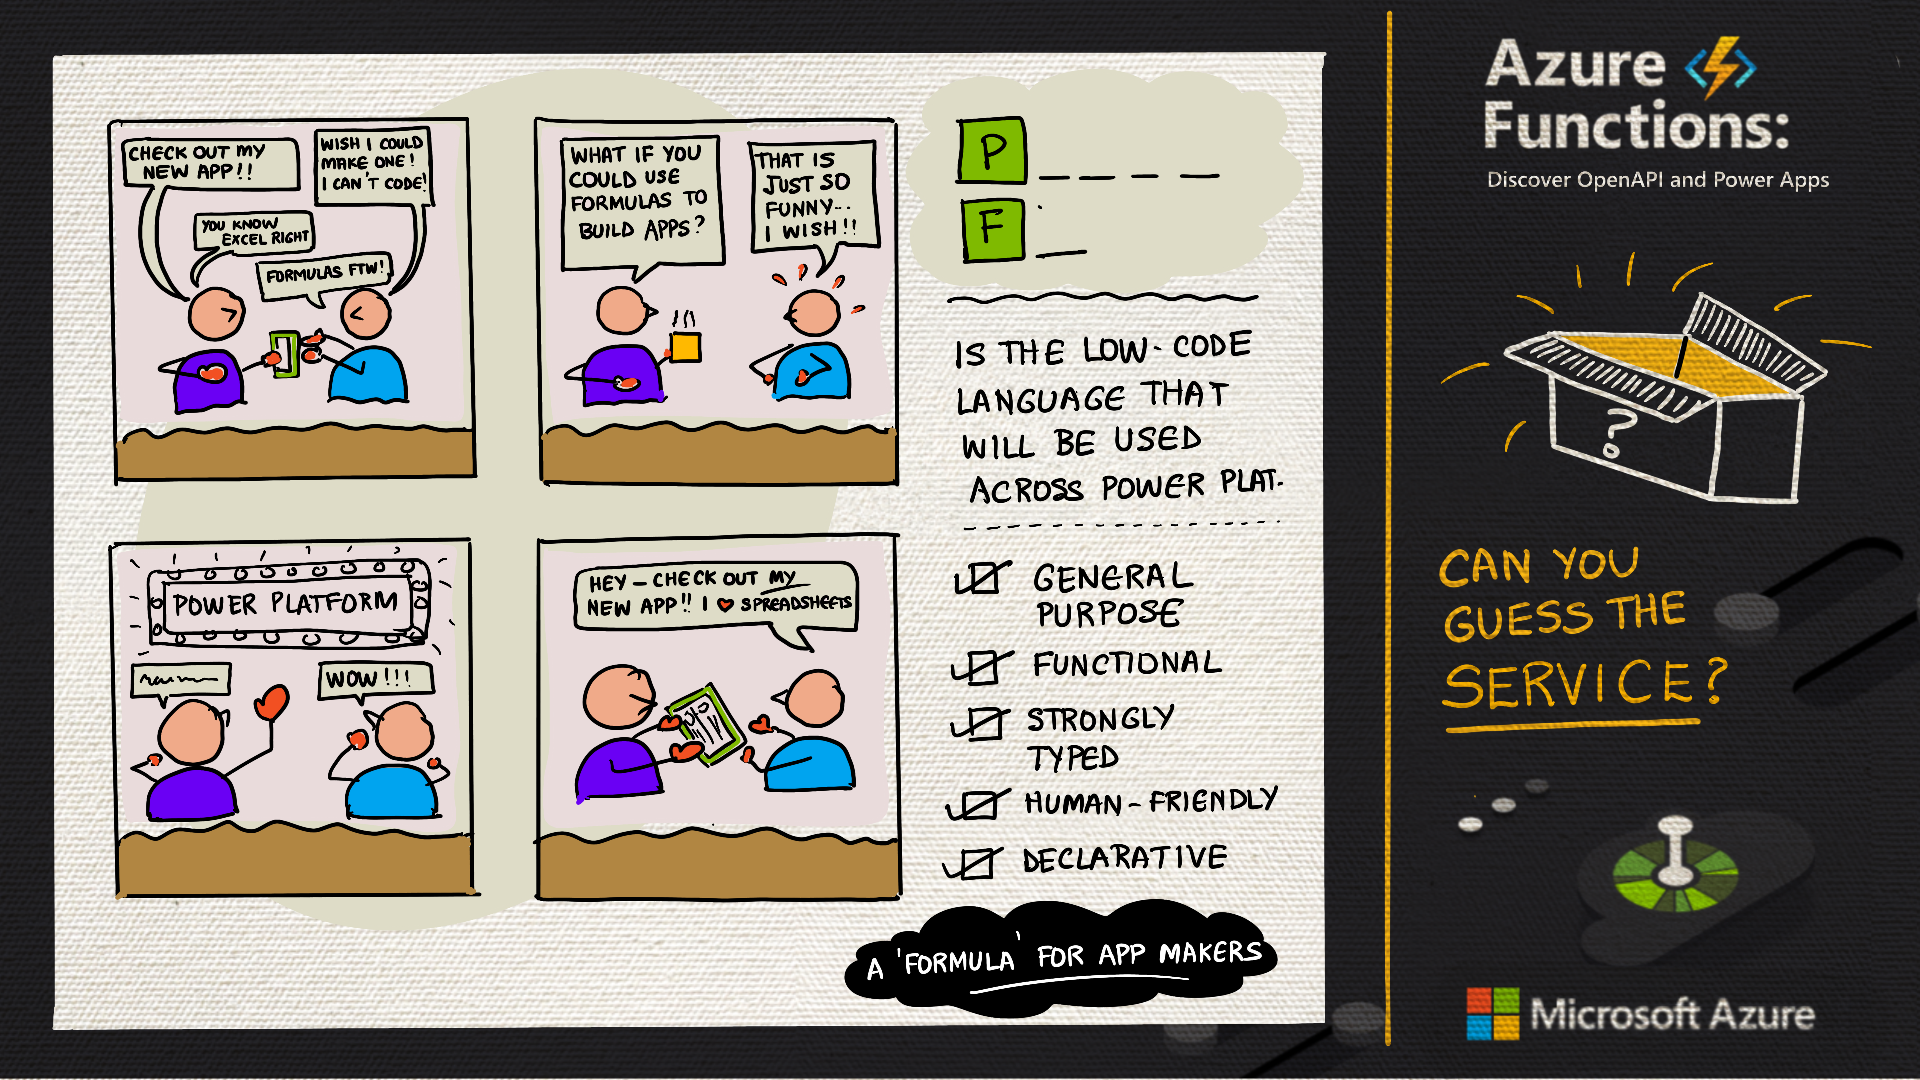 CHECK OUT MY
NEW APP!!
WISH I COULD
MAKE ONE!
I CAN'T CODE!
YOU KNOW
EXCEL RIGHT
FORMULAS FTW!
WHAT IF YOU
COULD USE
FORMULAS TO
BUILD APPS?
THAT IS
JUST SO
FUNNY...
I WISH!!
POWER PLATFORM
WOW!!!
HEY - CHECK OUT MY
NEW APP!! I ❤ SPREADSHEETS
P _ _ _ _
F _
IS THE LOW-CODE
LANGUAGE THAT
WILL BE USED
ACROSS POWER PLAT.
GENERAL
PURPOSE
FUNCTIONAL
STRONGLY
TYPED
HUMAN-FRIENDLY
DECLARATIVE
A 'FORMULA' FOR APP MAKERS
Azure
Functions:
Discover OpenAPI and Power Apps
?
CAN YOU
GUESS THE
SERVICE?
Microsoft Azure